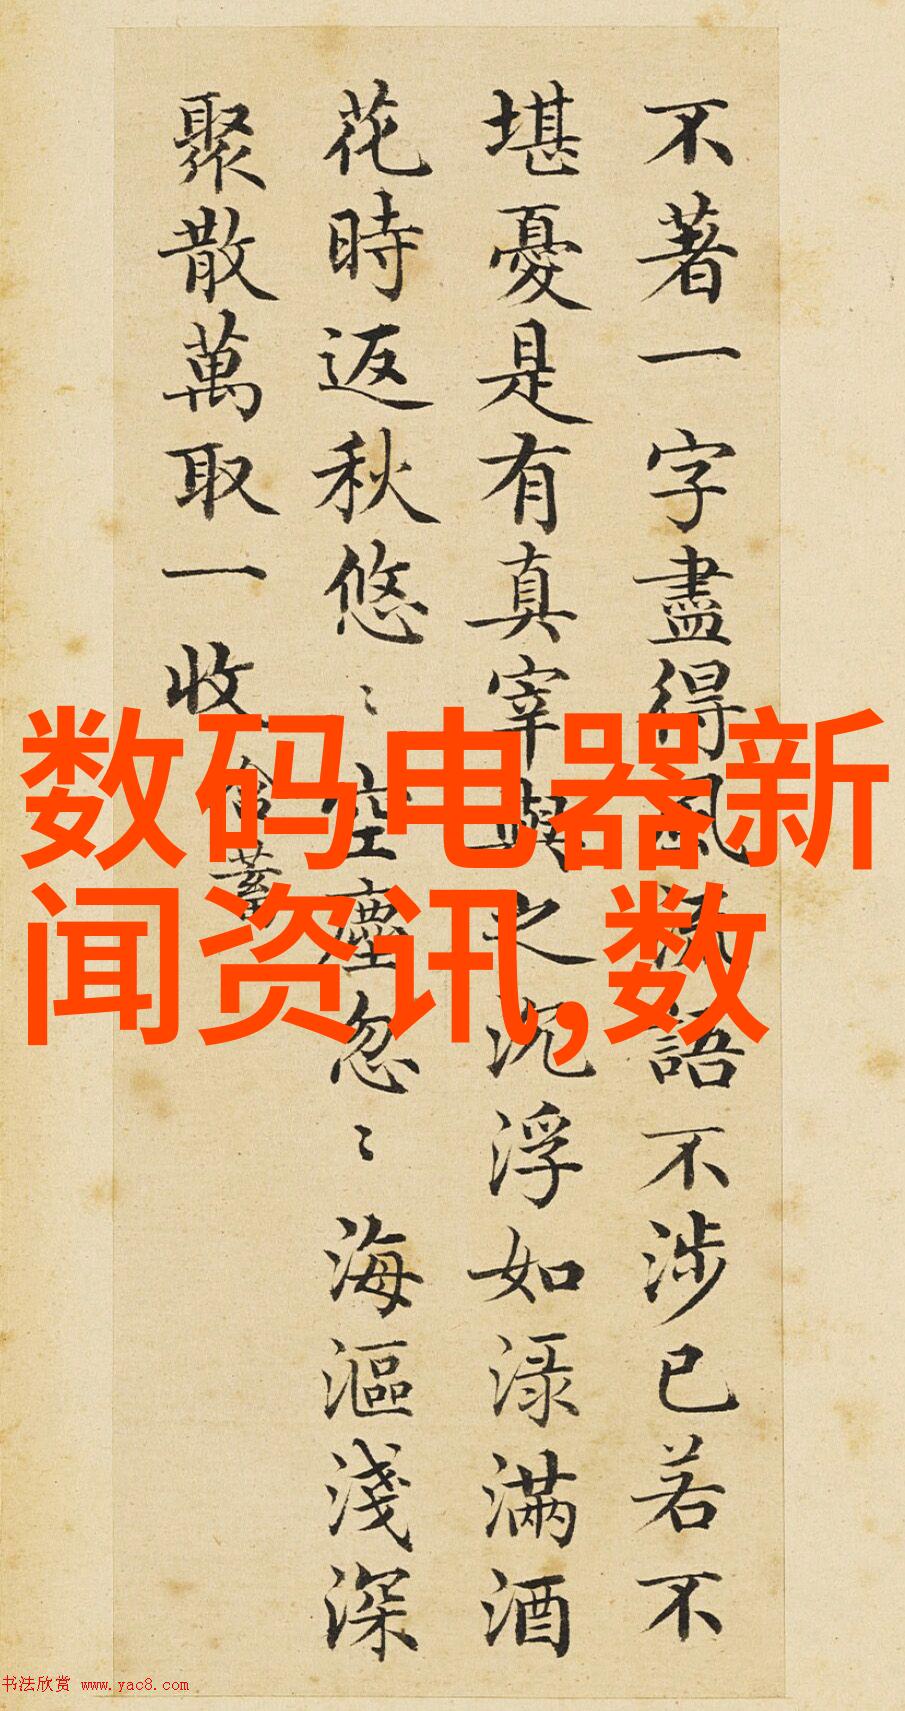 不著一字盡得風流語不涉已若不
堪憂是有真宰與之沉浮如渌滿酒
花時返秋悠〻空塵忽〻海漚淺深
聚散萬取一收 含蓄
数码电器新
闻资讯,数
书法欣赏 www.yac8.com